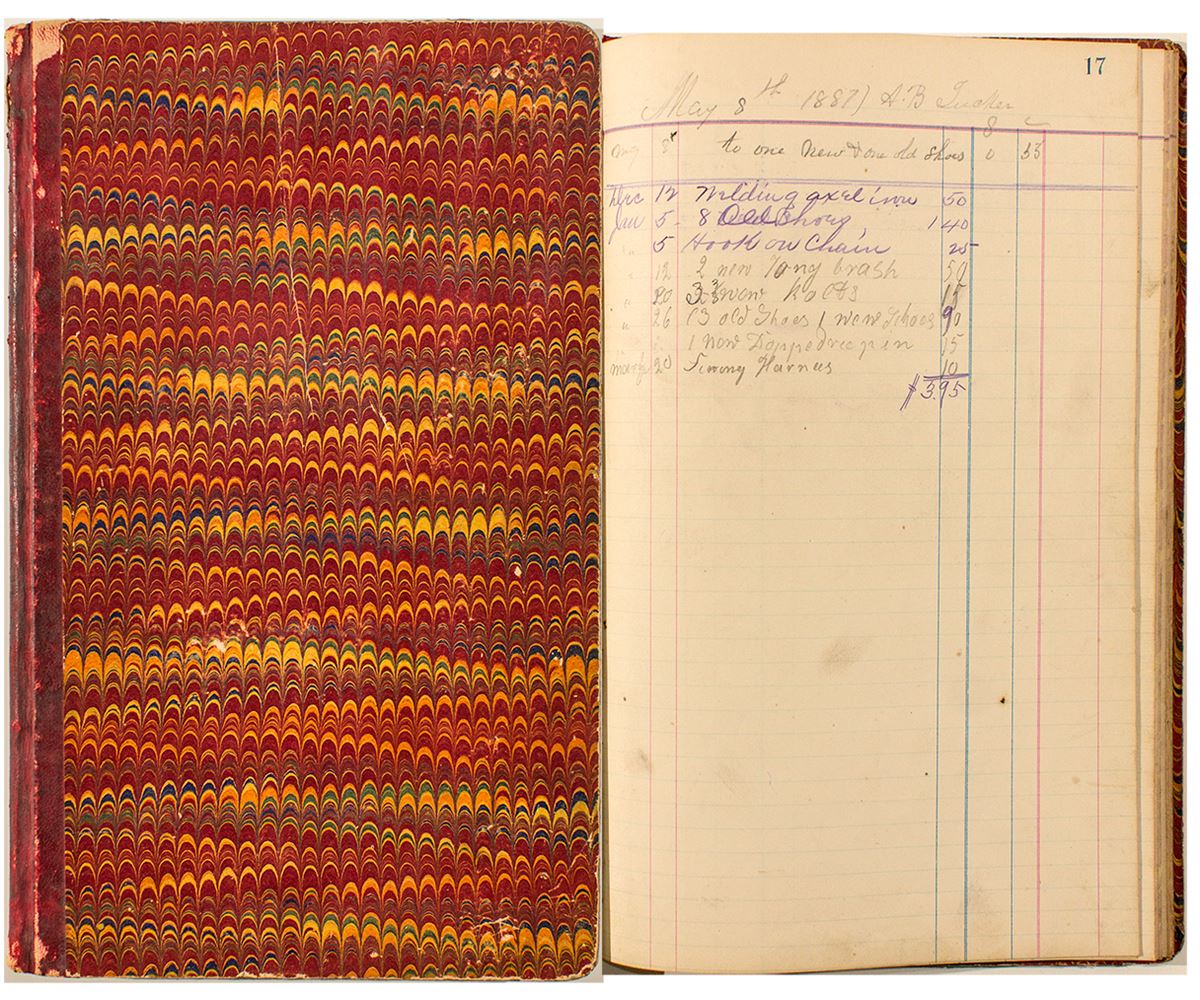 17
May 8th 1887) A.B Tucker
8 c
May 8 to one New & one old Shoes 0 35
Dec 12 Wilding axel iron 50
Jan 5 8 Old Shoes 1 40
" 5 Hook on Chain 25
" 12 2 new 50
" 20 3 new 15
" 26 3 old Shoes 1 new Shoes 90
" 1 new 15
20 Harnees 10
$3.95